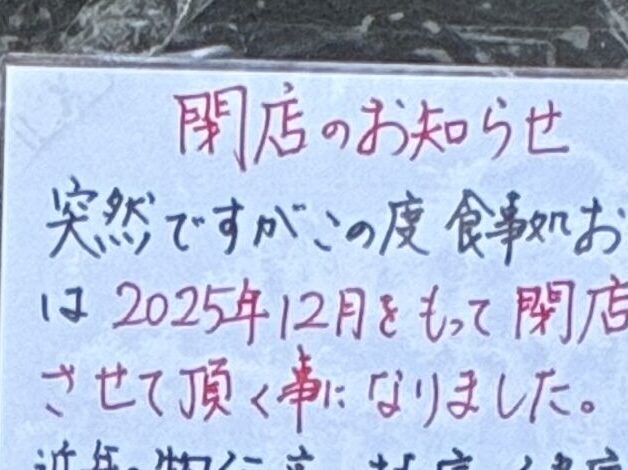 閉店のお知らせ
突然ですがこの度 食事処お
は 2025年12月をもって 閉店
させて頂く事になりました。